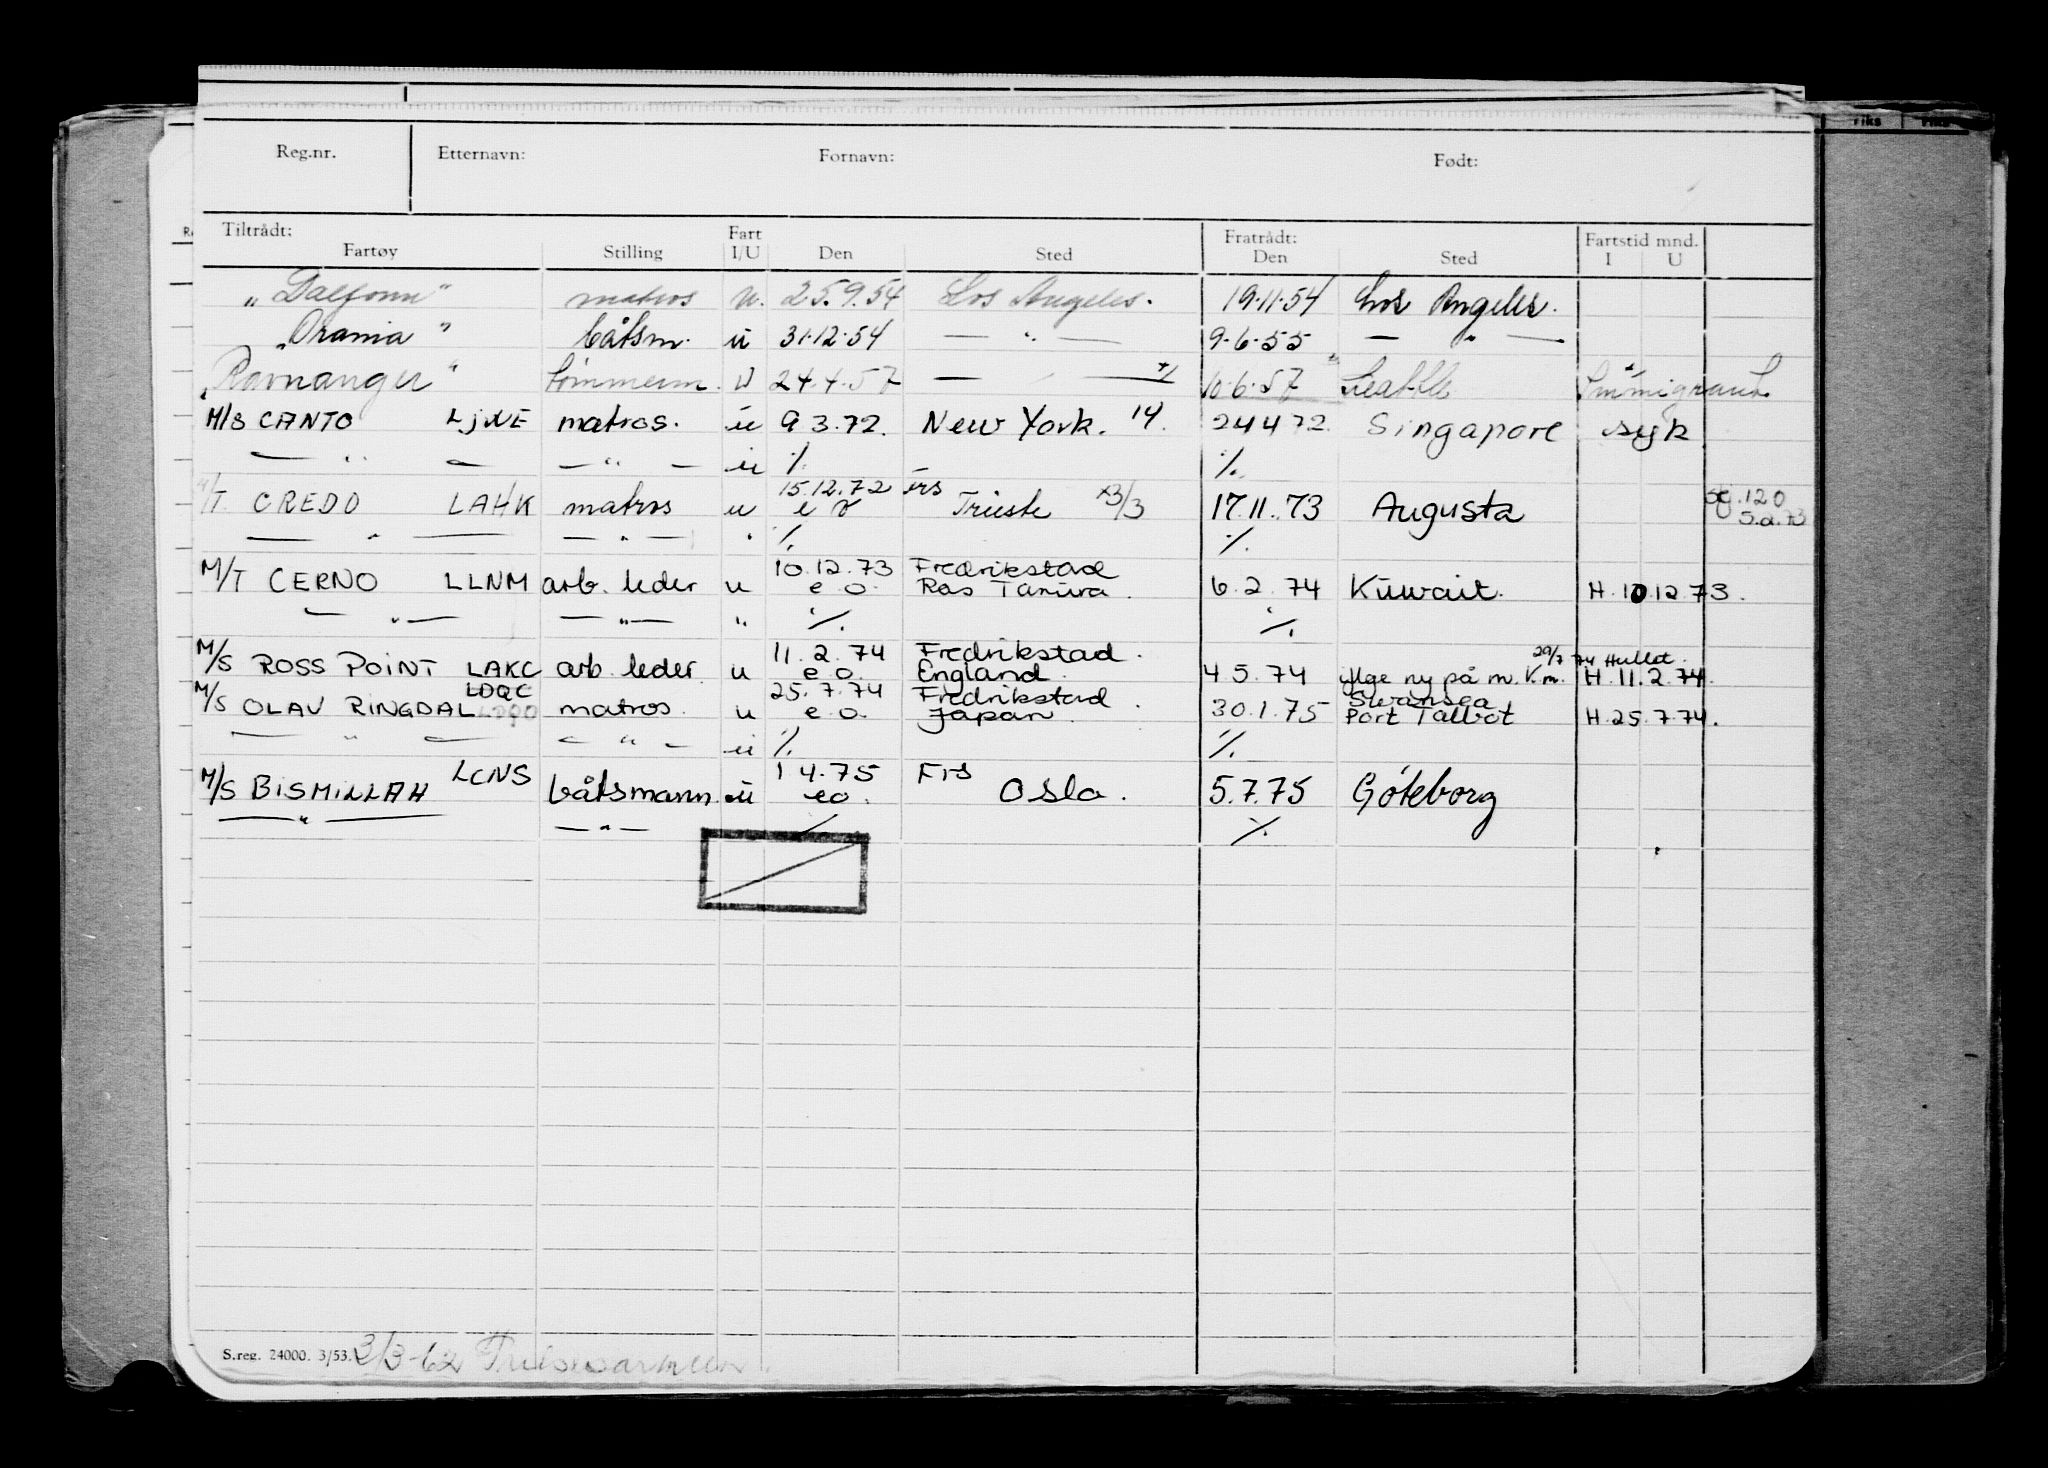 Reg.nr. Etternavn: Fornavn: Født:
Tiltrådt: Fart Fratrådt: Fartstid mnd.
Fartøy Stilling I/U Den Sted Den Sted I U
"Dalfonn" matros u. 25.9.54 Los Angeles. 19.11.54 Los Angeles.
"Orania" båtsm. u 31.12.54 — " — 9.6.55 — " —
"Ravnanger" tømmerm. U 24.4.57 — " — 10.6.57 Seattle Immigrant
M/S CANTO LJNE matros. u 9 3.72. New York. 14. 24 4 72. Singapore syk
— " — — " — u ./. ./.
M/T. CREDO LAHK matros u 15.12.72 frs e o Trieste x3/3 17.11.73 Augusta 120
— " — — " — " ./. ./.
M/T CERNO LLNM arb. leder u 10.12.73 Fredrikstad 6.2.74 Kuwait. H.10.12.73.
e.o. Ras Tanura.
— " — — " — " ./. ./.
M/S ROSS POINT LAKC arb. leder. u 11.2.74 Fredrikstad. 29/7 74 Hullet.
e.o. England. 4 5.74 iflge ny på m. K.m. H.11.2.74.
M/S OLAV RINGDAL LDQC matros. u 25.7.74 Fredrikstad. 30.1.75 Swansea
e.o. Japan. Port Talbot H.25.7.74.
— " — — " — u ./. ./.
M/S BISMILLAH LCNS båtsmann. u 1 4.75 Frs 5.7.75 Göteborg
eo. Oslo.
— " — — " — ./. ./.
S.reg. 24000. 3/53. 3/3-62